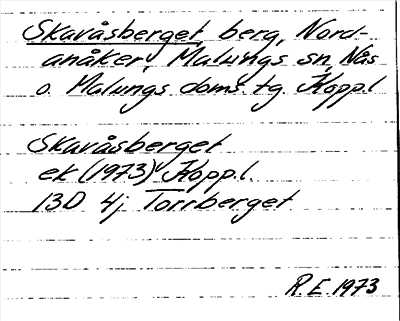 Skavåsberget, berg, Nord-
anåker, Malungs sn, Nås
o. Malungs doms. tg. Koppl
Skavåsberget
ek (1973) Koppl.
13D 4j Torrberget
R.E. 1973